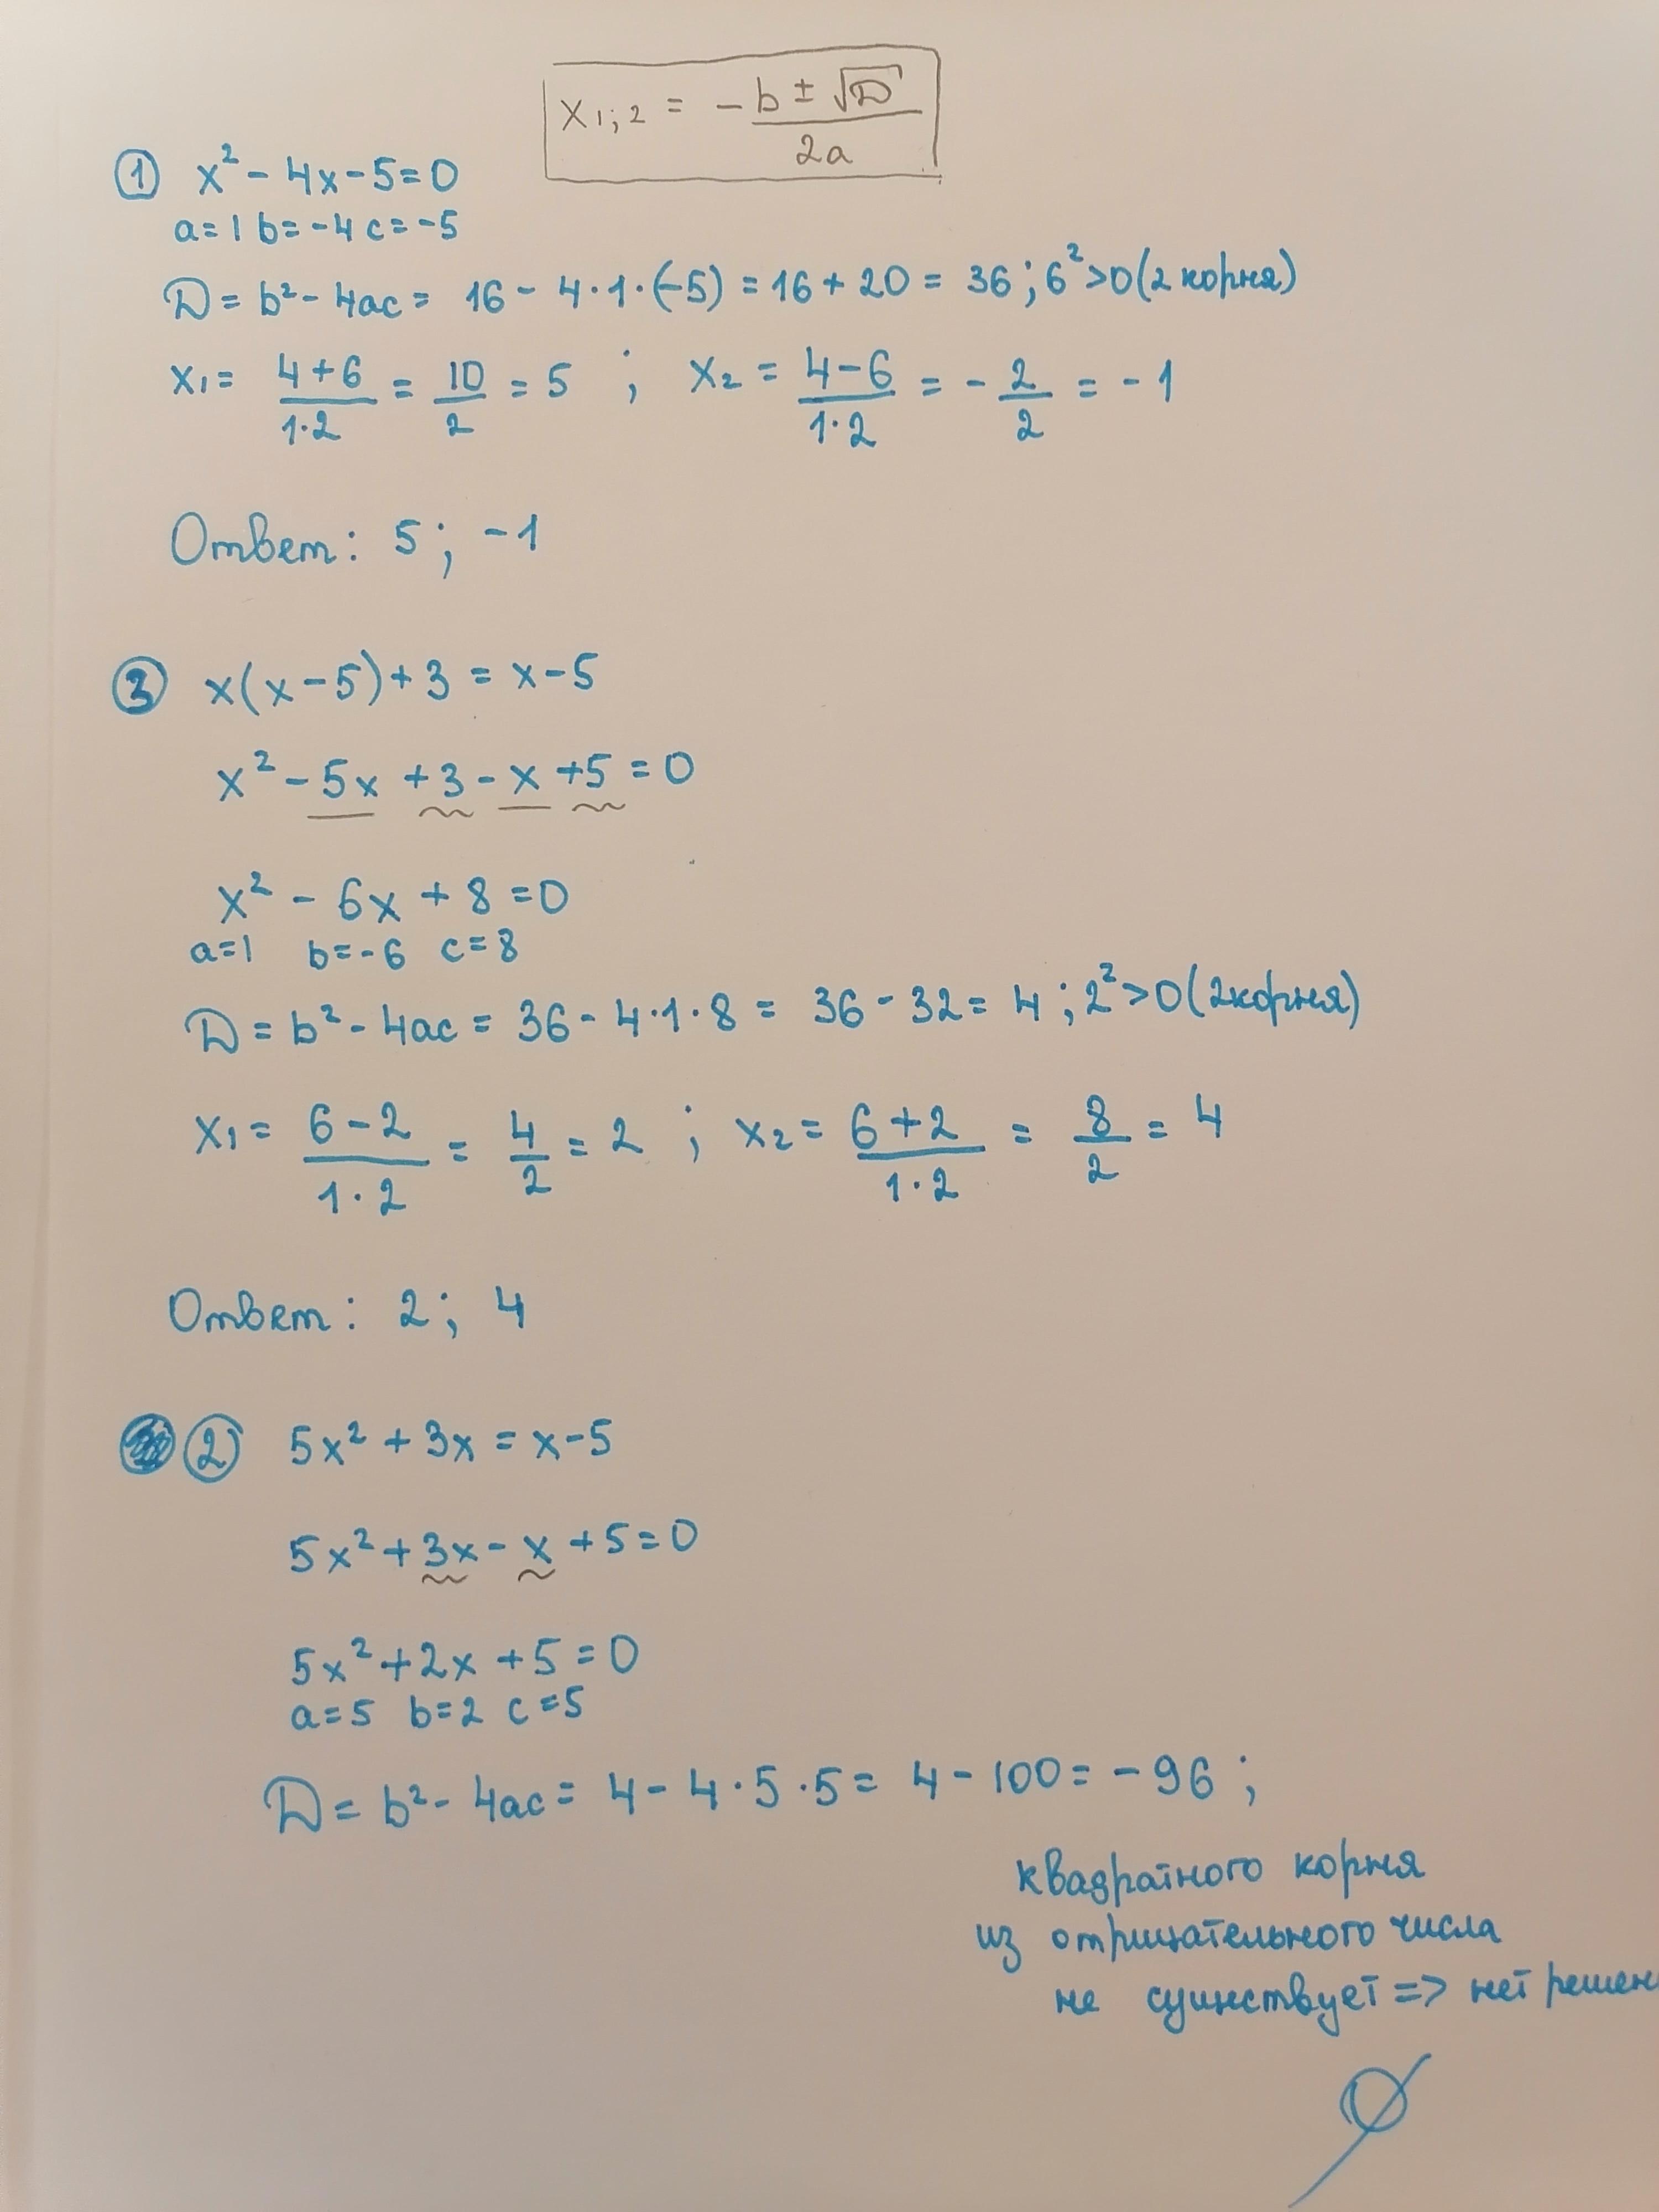 x₁;₂ = -b ± √D / 2a
① x² - 4x - 5 = 0
a = 1 b = -4 c = -5
D = b² - 4ac = 16 - 4·1·(-5) = 16 + 20 = 36 ; 6² > 0 (2 корня)
x₁ = 4+6 / 1·2 = 10/2 = 5 ; x₂ = 4-6 / 1·2 = -2/2 = -1
Ответ: 5 ; -1
③ x(x-5)+3 = x-5
x² - 5x + 3 - x + 5 = 0
x² - 6x + 8 = 0
a=1 b=-6 c=8
D = b² - 4ac = 36 - 4·1·8 = 36 - 32 = 4 ; 2² > 0 (2 корня)
x₁ = 6-2 / 1·2 = 4/2 = 2 ; x₂ = 6+2 / 1·2 = 8/2 = 4
Ответ: 2; 4
② 5x² + 3x = x-5
5x² + 3x - x + 5 = 0
5x² + 2x + 5 = 0
a=5 b=2 c=5
D = b² - 4ac = 4 - 4·5·5 = 4 - 100 = -96 ;
квадратного корня
из отрицательного числа
не существует => нет решен
∅